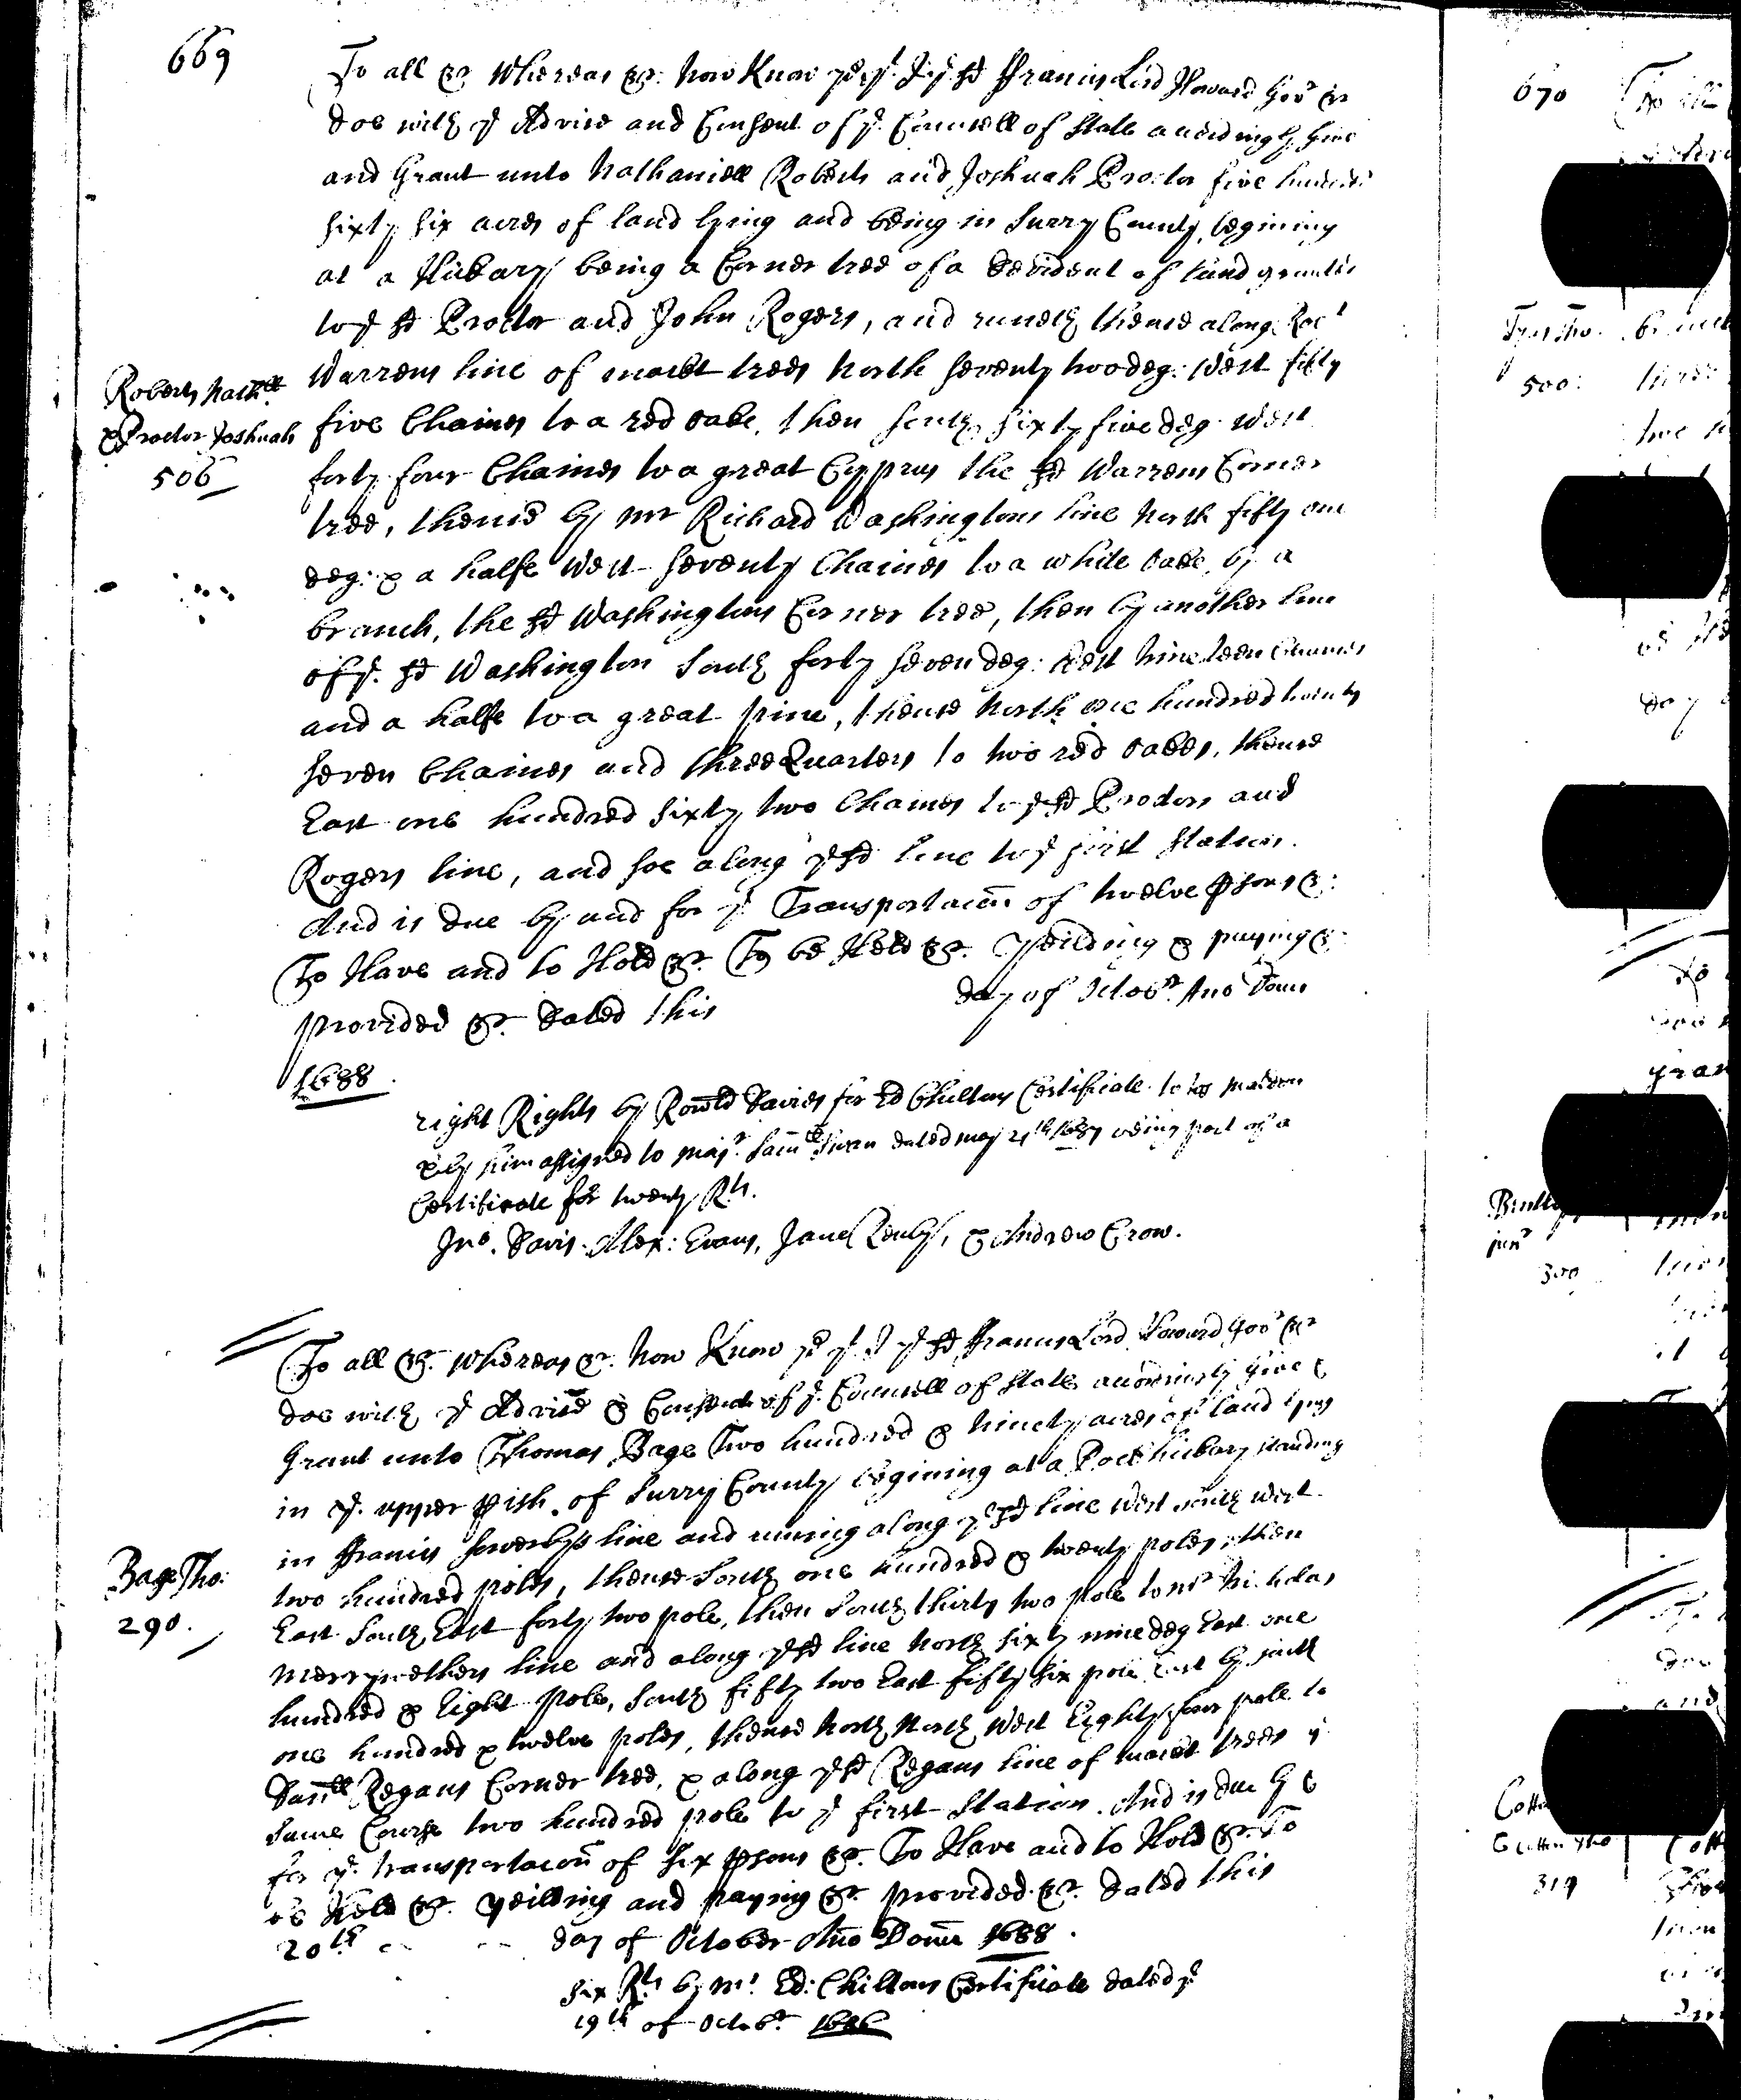 669
To all &c. Whereas &c. Now Know ye yt. I ye sd ffrancis Lord Howard Govr &c
doe with ye Advice and Consent of ye. Councell of State accordingly Give
and Grant unto Nathaniell Roberts and Joshuah Proctor five hundred
sixty six acres of land lying and being in Surry County, begining
at a Hickary being a Corner tree of a devident of land granted
to ye sd Proctor and John Rogers, and runeth thence along
Warrens line of markt trees North seventy two deg: West fifty
Roberts Nathll
& Proctor Joshuah
566
five Chaines to a red oake, then South sixty five deg: West
forty four Chaines to a great Cyprus the sd Warrens Corner
tree, thence by mr Richard Washingtons line North fifty one
deg: & a halfe West seventy Chaines to a white oake by a
branch, the sd Washingtons Corner tree, then by another line
of ye. sd Washington South forty seven deg: West nineteen Chaines
and a halfe to a great pine, thence North one hundred twenty
seven Chaines and three Quarters to two red oakes, thence
East one hundred sixty two Chaines to ye sd Proctors and
Rogers line, and soe along ye sd line to ye first Station.
And is due by and for ye Transportacon of twelve psons &c:
To Have and to Hold &c. To be Held &c. Yeilding & paying &c
provided &c. Dated this day of Octobr. Ano Dom
1688
eight Rights by Ed Chiltons Certificate to
& by him assigned to majr. Samll Swan dated may 1687 being part of a
Certificate for twenty Rts.
Jno. Davis. Alex: Evans, Jane & Andrew Crow.
To all &c. Whereas &c. Now Know ye yt. I ye sd ffrancis Lord Howard Govr &c
doe with ye Advice & Consent of ye. Councell of State accordingly Give &
Grant unto Thomas Bage Two hundred & Ninety acres of land lying
in ye. upper pish. of Surry County begining at a Pockhickory standing
in ffrancis Sowerbys line and runing along ye sd line West South West
Bage Tho:
290.
two hundred poles, thence South one hundred & twenty poles, then
East South East forty two pole, then South thirty two pole to mr Nicholas
Merrywethers line and along ye sd line North sixty nine deg East one
hundred & Eight pole, South fifty two East fifty six pole East by South
one hundred & twelve poles, thence North North West Eighty four pole to
Regans Corner tree, & along ye sd Regans line of markt trees ye
same Course two hundred pole to ye first Station. And is due by &
for ye. transportacon of six psons &c. To Have and to Hold &c. To
be Held &c. Yeilding and paying &c. provided &c. Dated this
20th day of October Ano Dom 1688.
six Rts by mr. Ed: Chiltons Certificate dated ye
19th of Octobr.
670
500:
junr
300
319